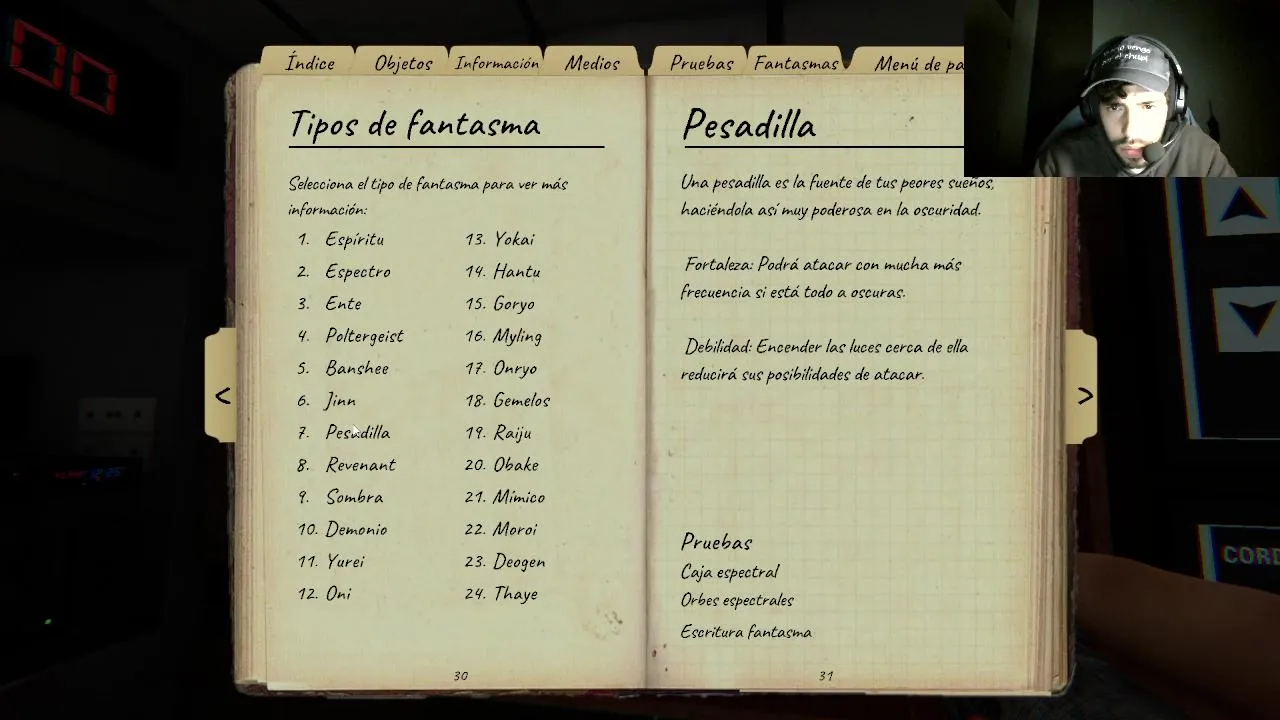 00
Índice
Objetos
Información
Medios
Pruebas
Fantasmas
Menú de pa
Tipos de fantasma
Selecciona el tipo de fantasma para ver más
información:
1. Espíritu
2. Espectro
3. Ente
4. Poltergeist
5. Banshee
6. Jinn
7. Pesadilla
8. Revenant
9. Sombra
10. Demonio
11. Yurei
12. Oni
13. Yokai
14. Hantu
15. Goryo
16. Myling
17. Onryo
18. Gemelos
19. Raiju
20. Obake
21. Mímico
22. Moroi
23. Deogen
24. Thaye
30
Pesadilla
Una pesadilla es la fuente de tus peores sueños,
haciéndola así muy poderosa en la oscuridad.
Fortaleza: Podrá atacar con mucha más
frecuencia si está todo a oscuras.
Debilidad: Encender las luces cerca de ella
reducirá sus posibilidades de atacar.
Pruebas
Caja espectral
Orbes espectrales
Escritura fantasma
31
<
>
CORD